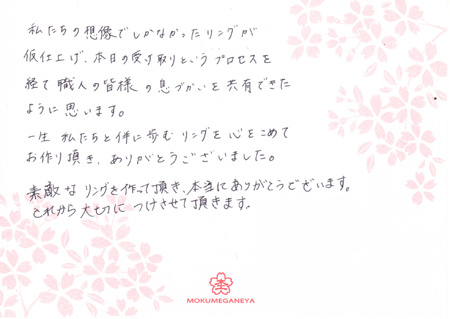 私たちの想像でしかなかったリングが
仮仕上げ、本日の受け取りというプロセスを
経て職人の皆様の息づかいを共有できた
ように思います。
一生私たちと伴に歩むリングを心をこめて
お作り頂き、ありがとうございました。
素敵なリングを作って頂き、本当にありがとうございます。
これから大切につけさせて頂きます。
MOKUMEGANEYA